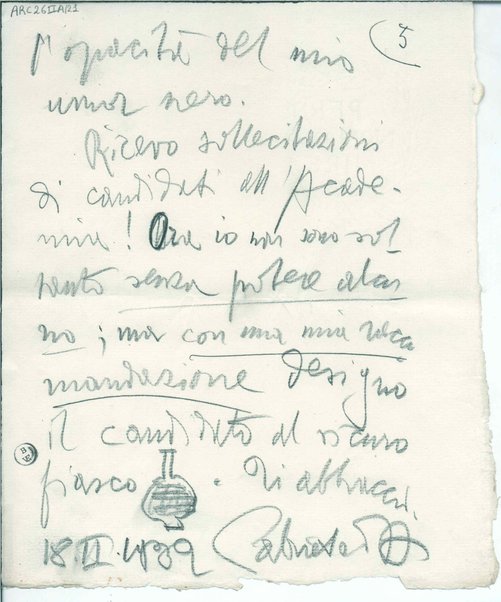 ARC26IIA121
5
l'opacità del mio
umor nero.
Ricevo sollecitazioni
di candidati all'Acade-
mia! Ora io non sono sol
tanto senza potere alcu
no; ma con una mia racco
mandazione designo
il candidato al sicuro
fiasco. Ti abbraccio.
18.II.1939 Gabriele